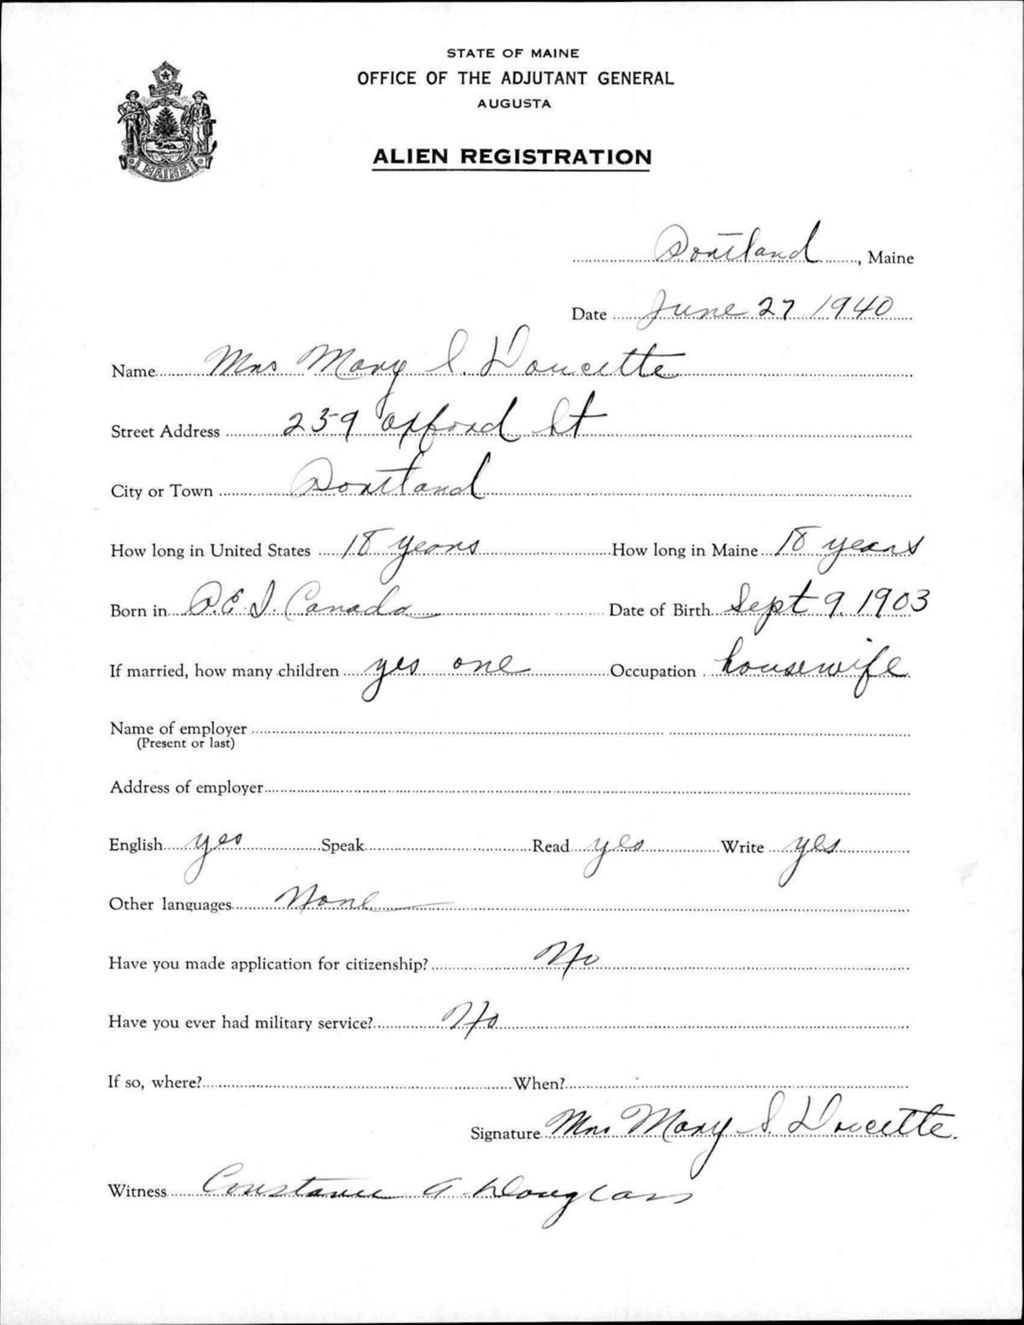 STATE OF MAINE
OFFICE OF THE ADJUTANT GENERAL
AUGUSTA
ALIEN REGISTRATION
MAINE
Portland, Maine
Date June 27 1940
Name Mrs Mary S. Doucette
Street Address 259 Oxford St
City or Town Portland
How long in United States 18 years How long in Maine 18 years
Born in P.E.I. Canada Date of Birth Sept 9. 1903
If married, how many children yes one Occupation housewife
Name of employer
(Present or last)
Address of employer
English yes Speak Read yes Write yes
Other languages None
Have you made application for citizenship? No
Have you ever had military service? No
If so, where? When?
Signature Mrs Mary S. Doucette.
Witness Constance A. Douglass